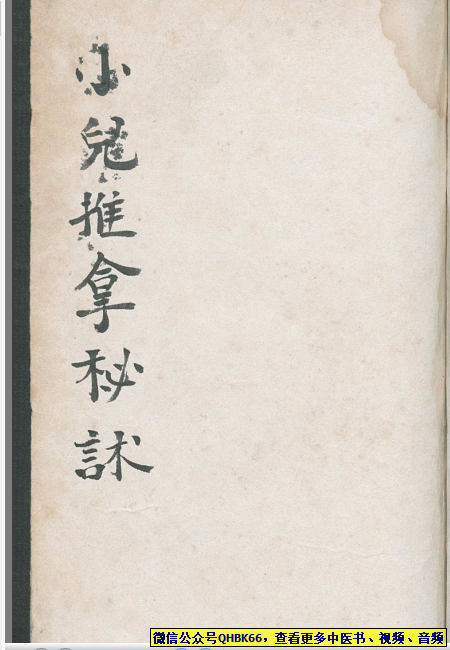 小兒推拿秘訹
微信公众号QHBK66，查看更多中医书、视频、音频